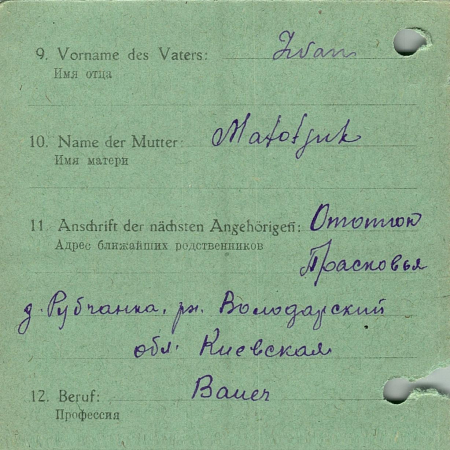 9. Vorname des Vaters: Iwan
Имя отца
10. Name der Mutter:
Имя матери
11. Anschrift der nächsten Angehörigen:
Адрес ближайших родственников
Прасковья
д. Рубчанка, рн. Володарский
обл. Киевская
12. Beruf: Bauer
Профессия